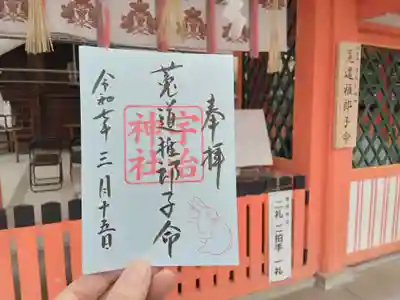 奉拝
菟道稚郎子命
宇治
神社
令和七年三月十五日
菟道稚郎子命
二礼二拍手一礼